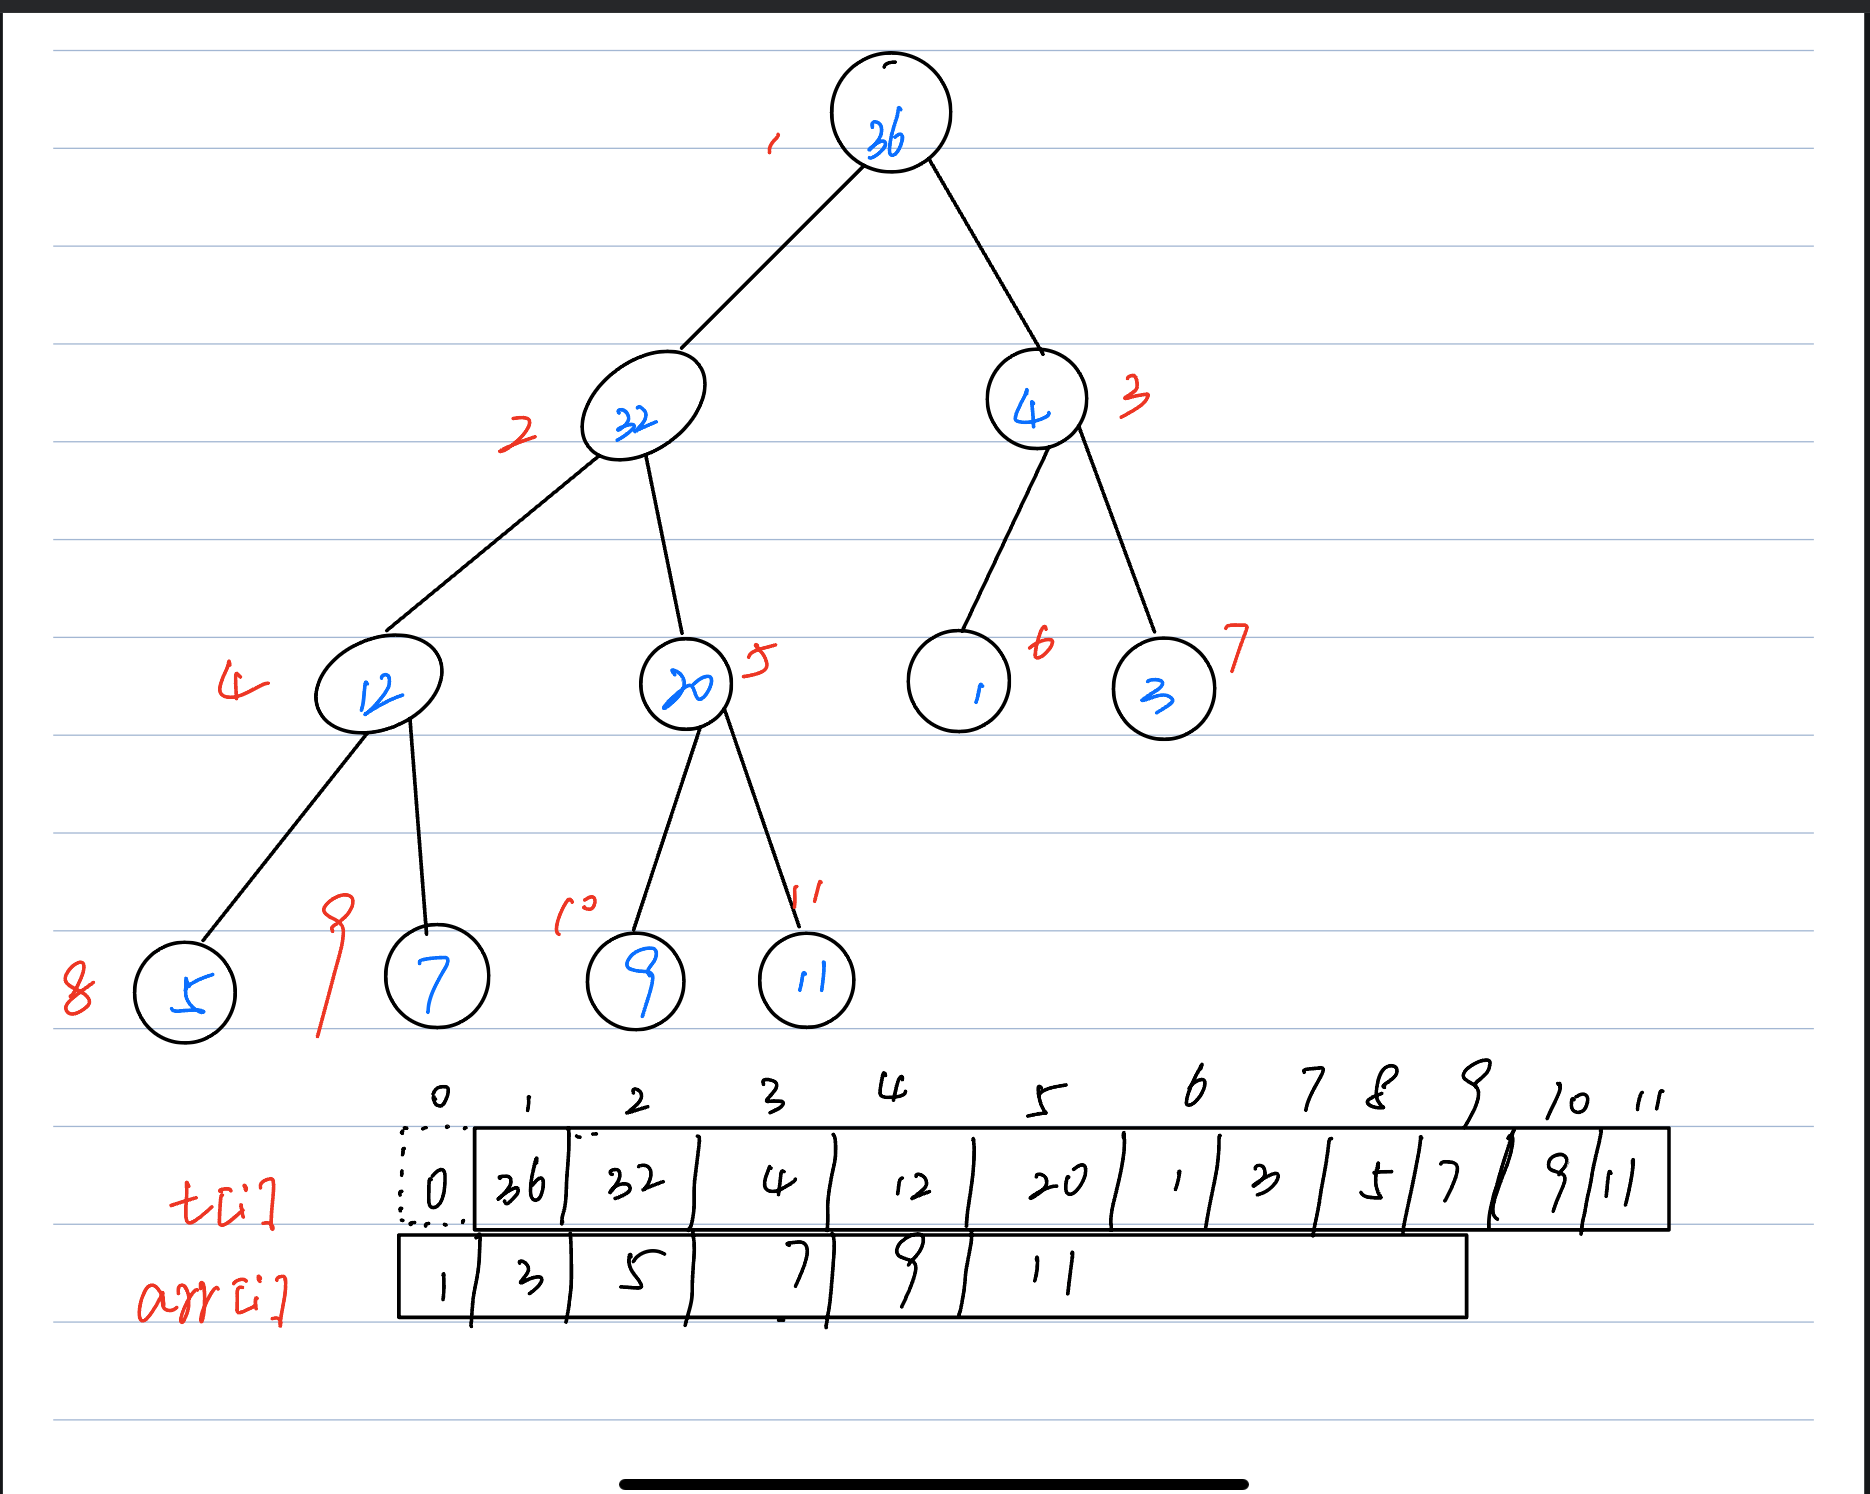 1 36
2 32 4 3
4 12 20 5 1 6 3 7
8 5 9 7 10 9 11 11
0 1 2 3 4 5 6 7 8 9 10 11
t[i] 0 36 32 4 12 20 1 3 5 7 9 11
arr[i] 1 3 5 7 9 11